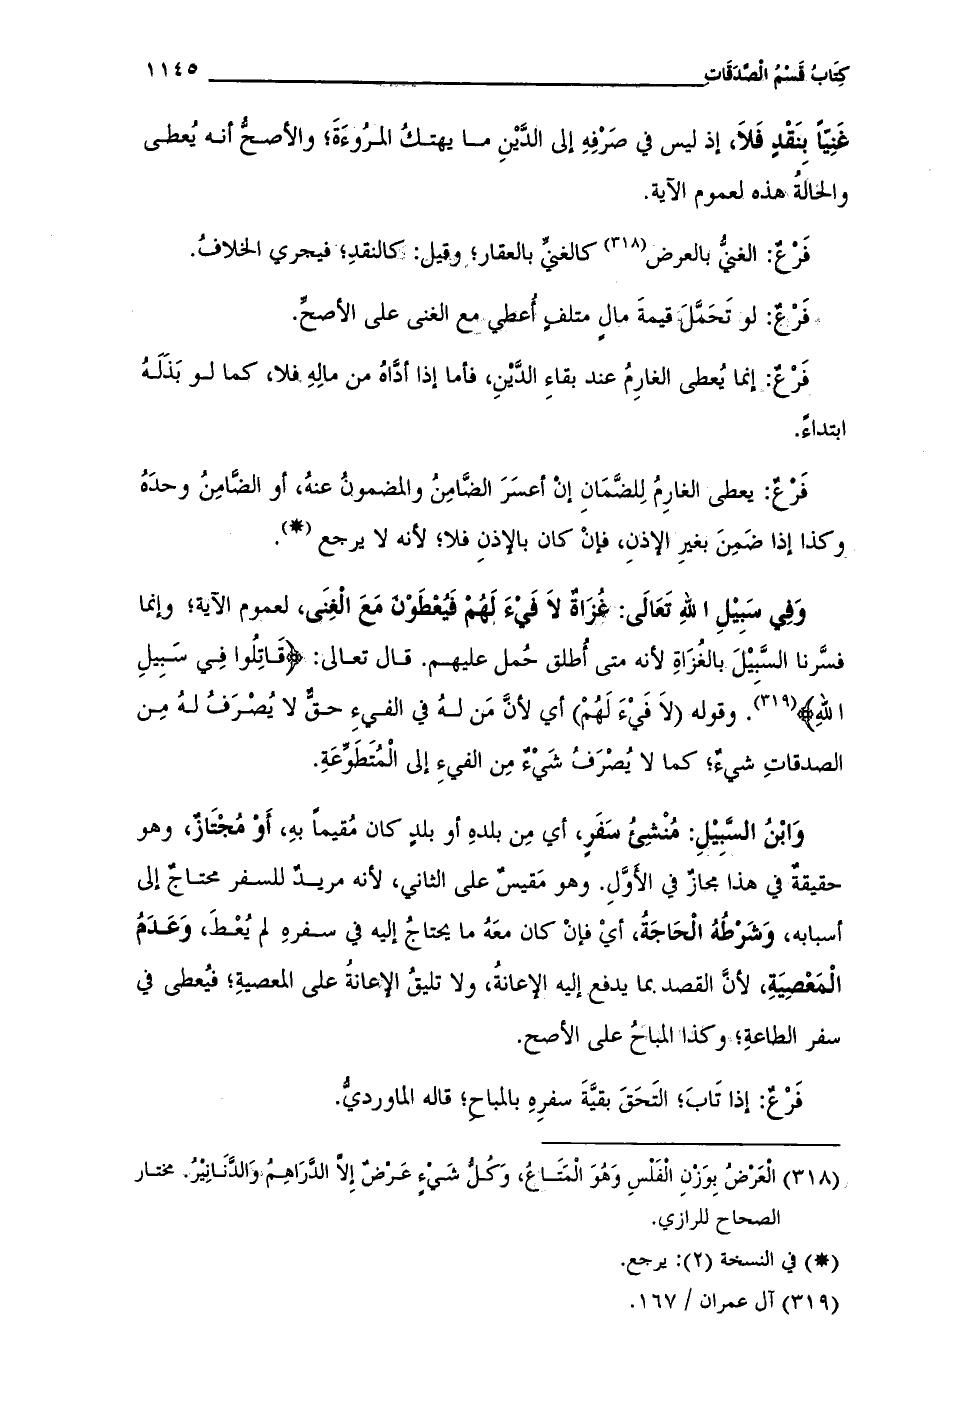 كِتَابُ قَسْمِ الصَّدَقَاتِ ١١٤٥
غَنِيّاً بِنَقْدٍ فَلَا، إذ ليس في صَرْفِهِ إلى الدَّيْنِ ما يهتكُ المروءَةَ؛ والأصحُّ أنه يُعطى
والحالةُ هذه لعموم الآية.
فَرْعٌ: الغنيُّ بالعرض(٣١٨) كالغنيِّ بالعقار؛ وقيل: كالنقدِ؛ فيجري الخلافُ.
فَرْعٌ: لو تَحَمَّلَ قيمةَ مالٍ متلفٍ أُعطي مع الغنى على الأصحِّ.
فَرْعٌ: إنما يُعطى الغارِمُ عند بقاءِ الدَّيْنِ، فأما إذا أدَّاهُ من مالِهِ فلا، كما لو بَذَلَهُ
ابتداءً.
فَرْعٌ: يعطى الغارِمُ لِلضَّمَانِ إنْ أعسَرَ الضَّامِنُ والمضمونُ عنهُ، أو الضَّامِنُ وحدَهُ
وكذا إذا ضَمِنَ بغيرِ الإذنِ، فإنْ كان بالإذنِ فلا؛ لأنه لا يرجع (*).
وَفِي سَبِيْلِ اللهِ تَعَالَى: غُزَاةٌ لاَ فَيْءَ لَهُمْ فَيُعْطَوْنَ مَعَ الْغِنَى، لعموم الآية؛ وإنما
فسَّرنا السَّبِيْلَ بالغُزَاةِ لأنه متى أُطلق حُمل عليهم. قال تعالى: ﴿قَاتِلُوا فِي سَبِيلِ
اللهِ﴾(٣١٩). وقوله (لاَ فَيْءَ لَهُمْ) أي لأنَّ مَن لهُ في الفيءِ حقٌّ لا يُصْرَفُ لهُ مِن
الصدقاتِ شيءٌ؛ كما لا يُصْرَفُ شَيْءٌ مِن الفيءِ إلى الْمُتَطَوِّعَةِ.
وَابْنُ السَّبِيْلِ: مُنْشِئُ سَفَرٍ، أي مِن بلدِهِ أو بلدٍ كان مُقيماً بهِ، أَوْ مُجْتَازٌ، وهو
حقيقةٌ في هذا مجازٌ في الأَوَّلِ. وهو مَقيسٌ على الثاني، لأنه مريدٌ للسفر محتاجٌ إلى
أسبابه، وَشَرْطُهُ الْحَاجَةُ، أيْ فإنْ كان معَهُ ما يحتاجُ إليه في سفرهِ لم يُعْطَ، وَعَدَمُ
الْمَعْصِيَةِ، لأنَّ القصد بما يدفع إليه الإعانةُ، ولا تليقُ الإعانةُ على المعصيةِ؛ فيُعطى في
سفر الطاعةِ؛ وكذا المباحُ على الأصح.
فَرْعٌ: إذا تَابَ؛ التَحَقَ بقيَّةَ سفرِهِ بالمباحِ؛ قاله الماورديُّ.
(٣١٨) الْعَرْضُ بِوَزْنِ الْفَلْسِ وَهُوَ الْمَتَاعُ، وَكُلُّ شَيْءٍ عَرْضٌ إِلاَّ الدَّرَاهِمُ وَالدَّنَانِيْرُ. مختار
الصحاح للرازي.
(*) في النسخة (٢): يرجع.
(٣١٩) آل عمران / ١٦٧.